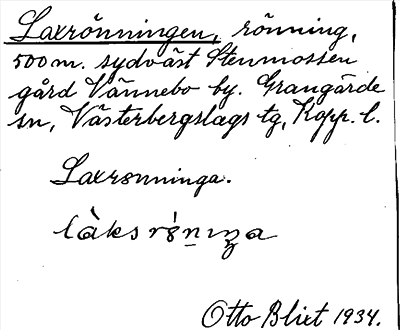 Laxrönningen, rönning,
500 m. sydväst Stenmossen
gård Vännebo by. Grangärde
sn, Västerbergslags tg, Kopp. l.
Laxrønninga.
Otto Blixt 1934.